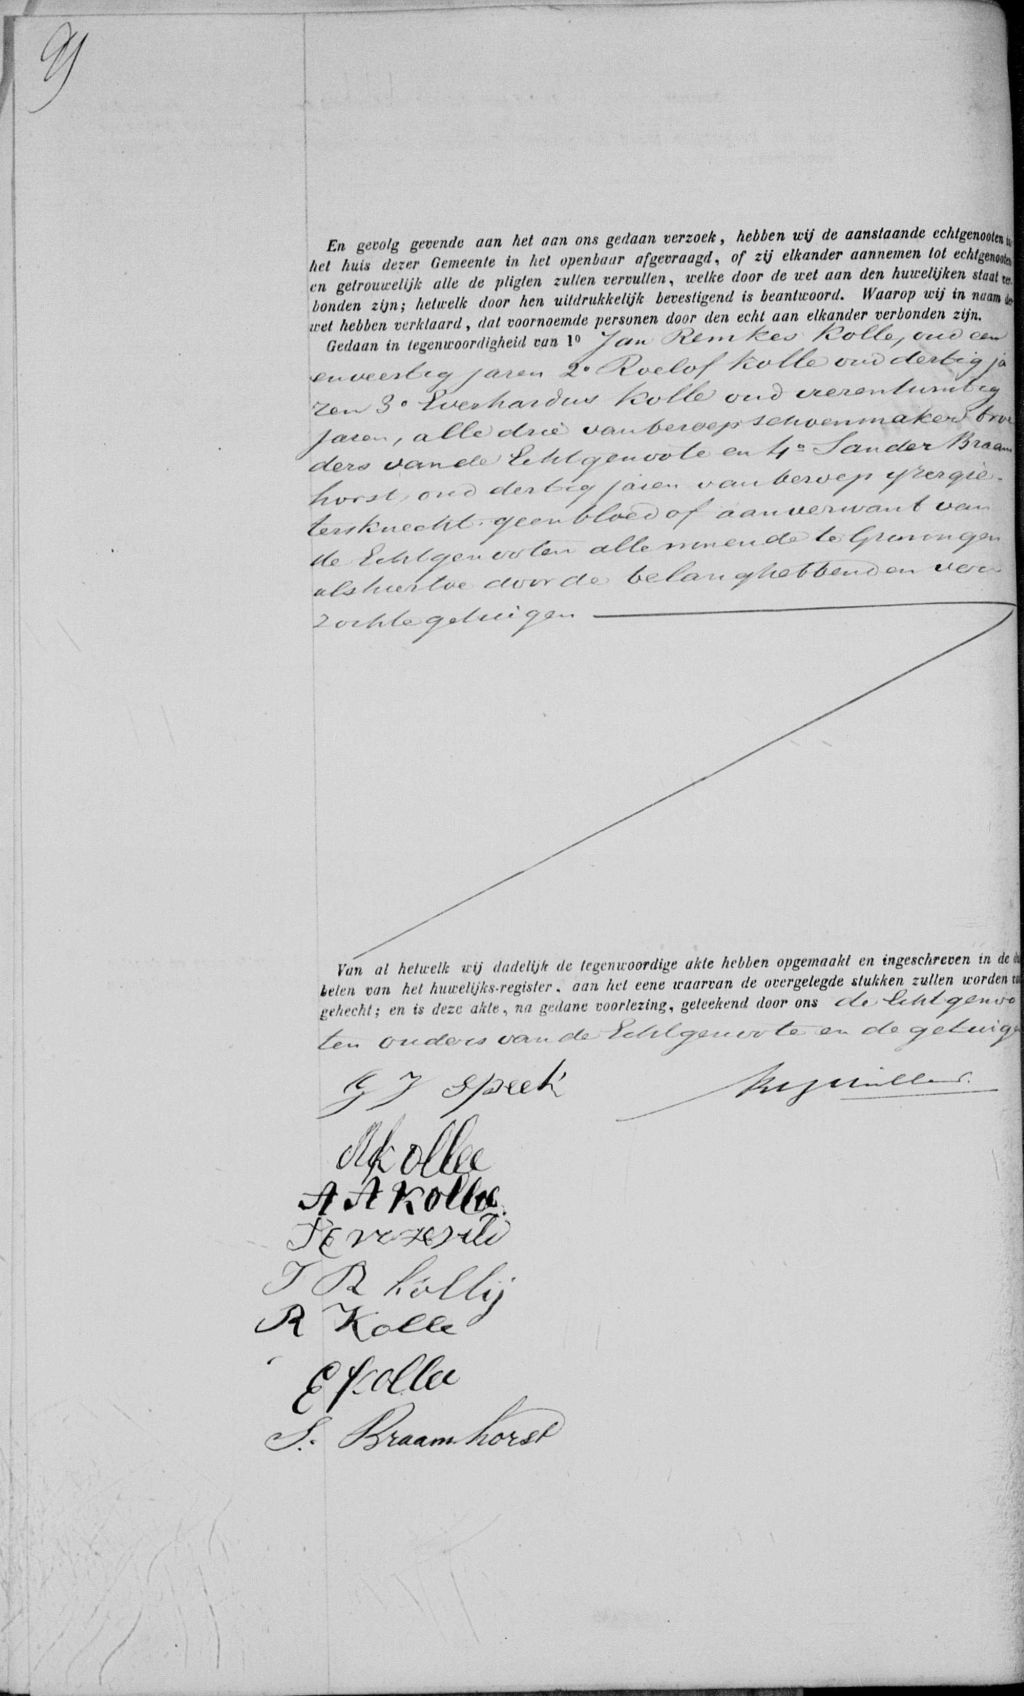 En gevolg gevende aan het aan ons gedaan verzoek, hebben wij de aanstaande echtgenooten in
het huis dezer Gemeente in het openbaar afgevraagd, of zij elkander aannemen tot echtgenooten
en getrouwelijk alle de pligten zullen vervullen, welke door de wet aan den huwelijken staat ver
bonden zijn; hetwelk door hen uitdrukkelijk bevestigend is beantwoord. Waarop wij in naam der
wet hebben verklaard, dat voornoemde personen door den echt aan elkander verbonden zijn.
Gedaan in tegenwoordigheid van 1º Jan Remkes Kolle, oud een
enveertig jaren 2º Roelof Kolle oud dertig ja
ren 3º Everhardus Kolle oud vierentwintig
jaren, alle drie van beroep schoenmaker broe
ders van de Echtgenoote en 4º Sander Braam
horst oud dertig jaren van beroep yzergie-
tersknecht geen bloed of aanverwant van
de Echtgenooten alle wonende te Groningen
als hiertoe door de belanghebbenden ver
zochte getuigen
Van al hetwelk wij dadelijk de tegenwoordige akte hebben opgemaakt en ingeschreven in de du
belen van het huwelijks-register, aan het eene waarvan de overgelegde stukken zullen worden
gehecht; en is deze akte, na gedane voorlezing, geteekend door ons de Echtgenoo
ten ouders van de Echtgenoote en de getuig
G J Speek
Kolle
A A Kolle
J R Kollij
R Kolle
E Kolle
S. Braamhorst